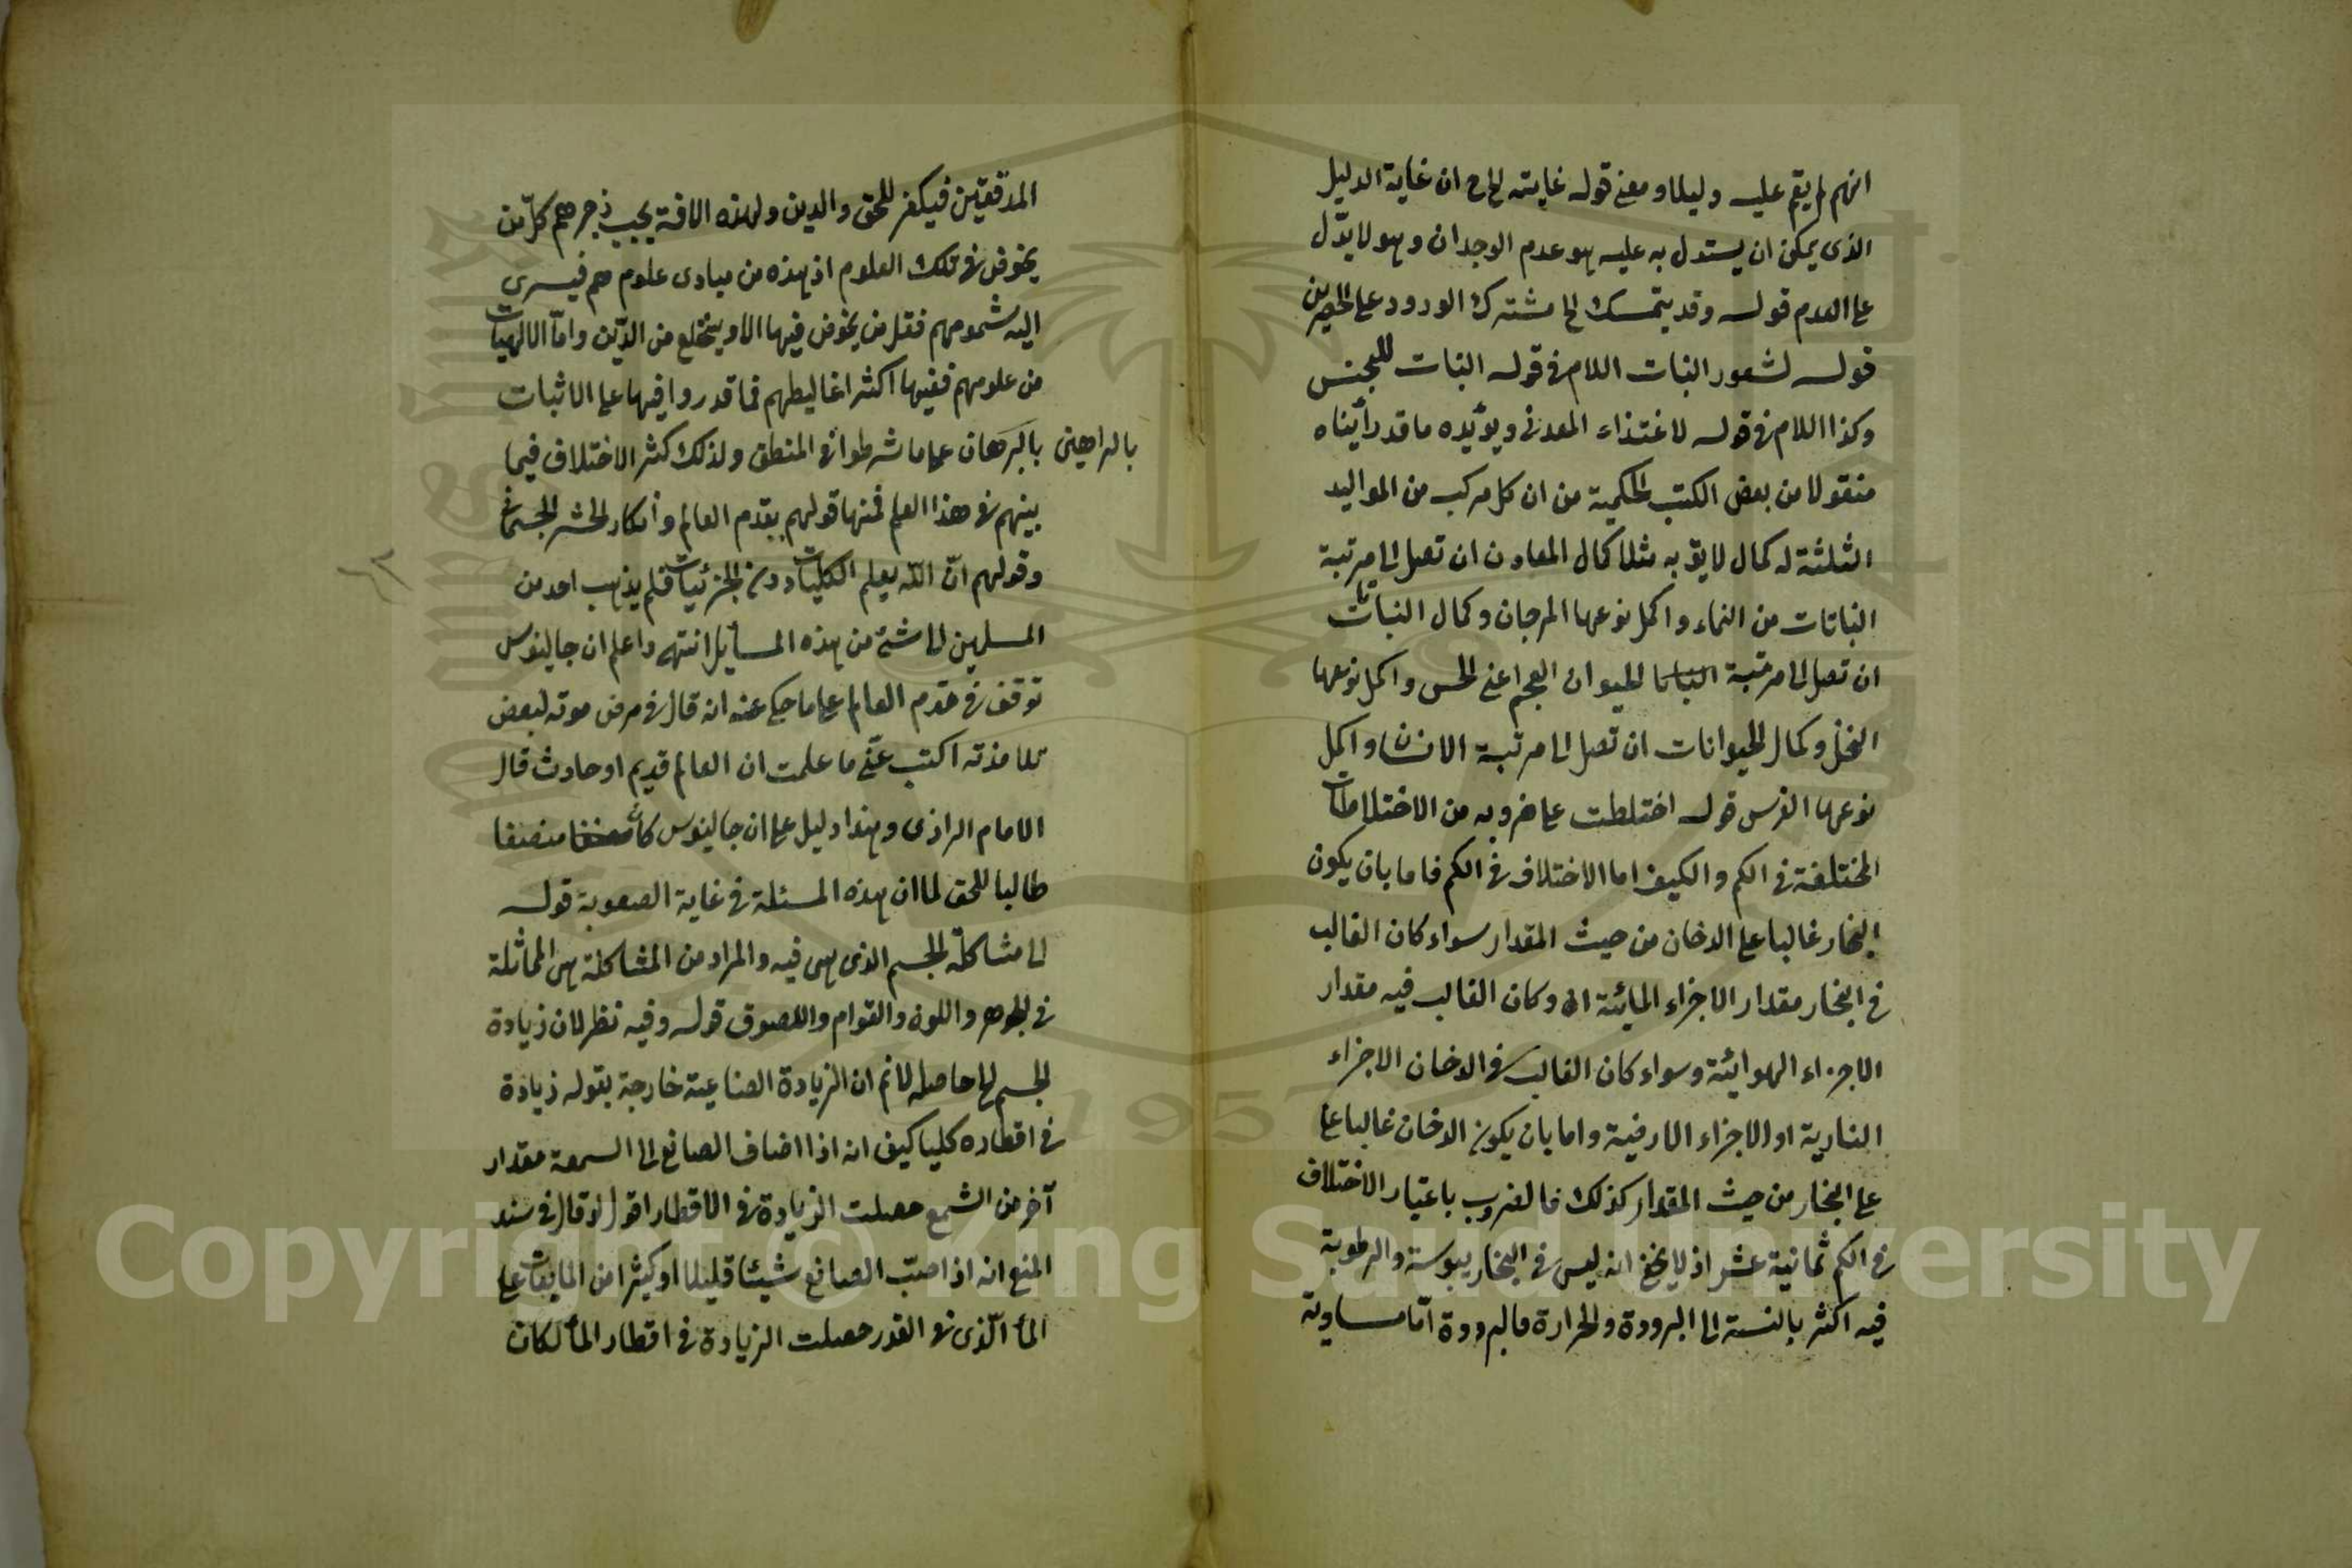 انهم لم يقم عليه دليلا ومعنى قوله غايته الخ ان غاية الدليل
الذى يمكن ان يستدل به عليه هو عدم الوجدان وهو لا يدّل
على العدم قوله وقد يتمسك الخ مشترك الورود على
قوله لشعور النبات اللام فى قوله النبات للجنس
وكذا اللام فى قوله لاغتذاء المعدنى ويؤيده ما قد رأيناه
منقولا من بعض الكتب الحكمية من ان كل مركب من المواليد
الثلثة له كمال لايق به مثلا كمال المعادن ان تصل الى مرتبة
النباتات من النماء واكمل نوعها المرجان وكمال النباتات
ان تصل الى مرتبة الحيوان العجم اعنى الحس واكمل نوعها
النخل وكمال الحيوانات ان تصل الى مرتبة الانسان واكمل
نوعها الفرس قوله اختلطت على ضروب من الاختلاطات
المختلفة فى الكم والكيف اما الاختلاف فى الكم فاما بان يكون
البخار غالبا على الدخان من حيث المقدار سواء كان الغالب
فى البخار مقدار الاجزاء المائية او كان الغالب فيه مقدار
الاجزاء الهوائية وسواء كان الغالب فى الدخان الاجزاء
النارية او الاجزاء الارضية واما بان يكون الدخان غالبا على
على البخار من حيث المقدار كذلك فالضروب باعتبار الاختلاف
فى الكم ثمانية عشر اذ لا يخفى انه ليس فى البخار يبوسة والرطوبة
فيه اكثر بالنسبة الى البرودة والحرارة فالبرودة امّا مساوية
المدققين فيكفر للحق والدين ولهذه الافة يجب زجرهم كلّ من
يخوض فى تلك العلوم اذ هذه من مبادى علوم هم فيسرى
اليه شمومهم فقل من يخوض فيها الا وينخلع من الدّين وامّا الالهيات
من علومهم ففيها اكثر اغاليطهم فما قدروا فيها على الاثبات
بالبراهين
بالبرهان على ما شرطوا فى المنطق ولذلك كثر الاختلاف فيما
بينهم فى هذا العلم فمنها قولهم بقدم العالم وأنكار الحشر الجسمانى
وقولهم انّ اللّه يعلم الكليات دون الجزئيات فلم يذهب احد من
المسلمين الى شئ من هذه المسايل انتهى واعلم ان جالينوس
توقف فى قدم العالم على ما حكى عنه انه قال فى مرض موته لبعض
تلامذته اكتب عنّى ما علمت ان العالم قديم او حادث قال
الامام الرازى وهذا دليل على ان جالينوس كان منصفا
طالبا للحق لما ان هذه المسئلة فى غاية الصعوبة قوله
الى مشاكلة الجسم الذى هى فيه والمراد من المشاكلة هى المماثلة
فى الجوهر واللون والقوام واللصوق قوله وفيه نظر لان زيادة
الجسم الخ حاصله لا نم ان الزيادة الصناعية خارجة بقوله زيادة
فى اقطاره كليا كيف انه اذا اضاف الصانع الى الشمعة مقدار
آخر من الشمع حصلت الزيادة فى الاقطار اقول لو قال فى سند
المنع انه اذا صبّ الصانع شيئا قليلا او كثيرا من المايعات على
الماء الّذى فى القدر حصلت الزيادة فى اقطار الماء لكان
Copyright © King Saud University
1957